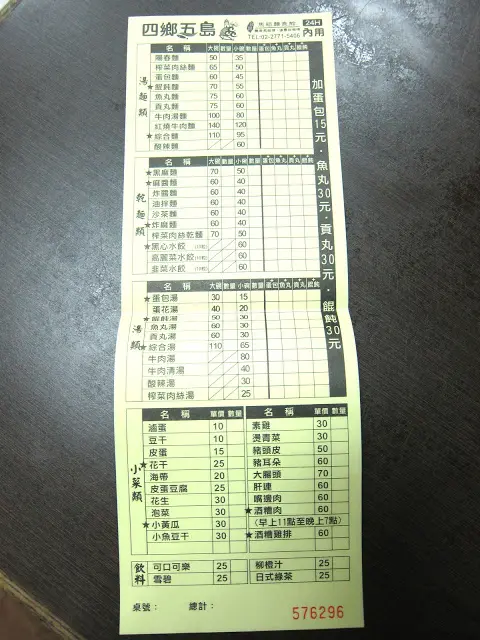 四鄉五島
馬祖麵食館
24H
內用
TEL:02-2771-5406
湯麵類
名稱 大碗 數量 小碗 數量 蛋包 魚丸 貢丸 餛飩
陽春麵 50 35
榨菜肉絲麵 65 50
蛋包麵 60 45
★餛飩麵 70 55
魚丸麵 75 60
貢丸麵 75 60
牛肉湯麵 100 80
紅燒牛肉麵 140 120
★綜合麵 110 95
酸辣麵 60
乾麵類
名稱 大碗 數量 小碗 數量 蛋包 魚丸 貢丸 餛飩
★黑麻麵 70 50
★麻醬麵 60 40
炸醬麵 60 40
油拌麵 60 40
沙茶麵 60 40
★炸麻麵 60 40
榨菜肉絲乾麵 70 50
★黑心水餃 60
高麗菜水餃 60
韭菜水餃 60
湯類
名稱 大碗 數量 小碗 數量 蛋包 魚丸 貢丸 餛飩
★蛋包湯 30 15
蛋花湯 40 20
★餛飩湯 50 30
魚丸湯 60 30
貢丸湯 60 30
★綜合湯 110 65
牛肉湯 80
牛肉清湯 40
酸辣湯 30
榨菜肉絲湯 25
加蛋包15元．魚丸30元．貢丸30元．餛飩30元
小菜類
名稱 單價 數量
滷蛋 10
豆干 10
皮蛋 15
★花干 25
海帶 20
皮蛋豆腐 25
花生 30
泡菜 30
★小黃瓜 30
小魚豆干 30
名稱 單價 數量
素雞 30
燙青菜 30
豬頭皮 50
豬耳朵 60
大腸頭 70
肝連 60
嘴邊肉 60
★酒糟肉 60
(早上11點至晚上7點)
★酒糟雞排 60
飲料
可口可樂 25
雪碧 25
柳橙汁 25
日式綠茶 25
桌號： 總計：
576296